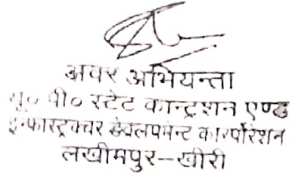 अवर अभियन्ता
यू० पी० स्टेट कान्ट्रशन एण्ड
इन्फास्ट्रक्चर डेवलपमेन्ट कार्पोरेशन
लखीमपुर-खीरी